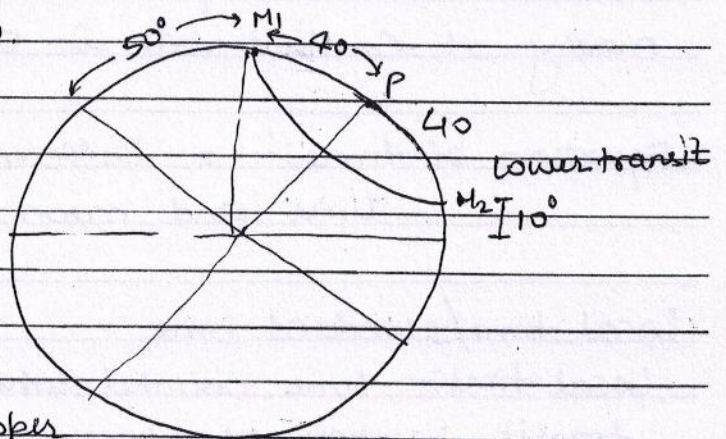 50° M1 40
P
40
Lower transit
M2 10°
pper